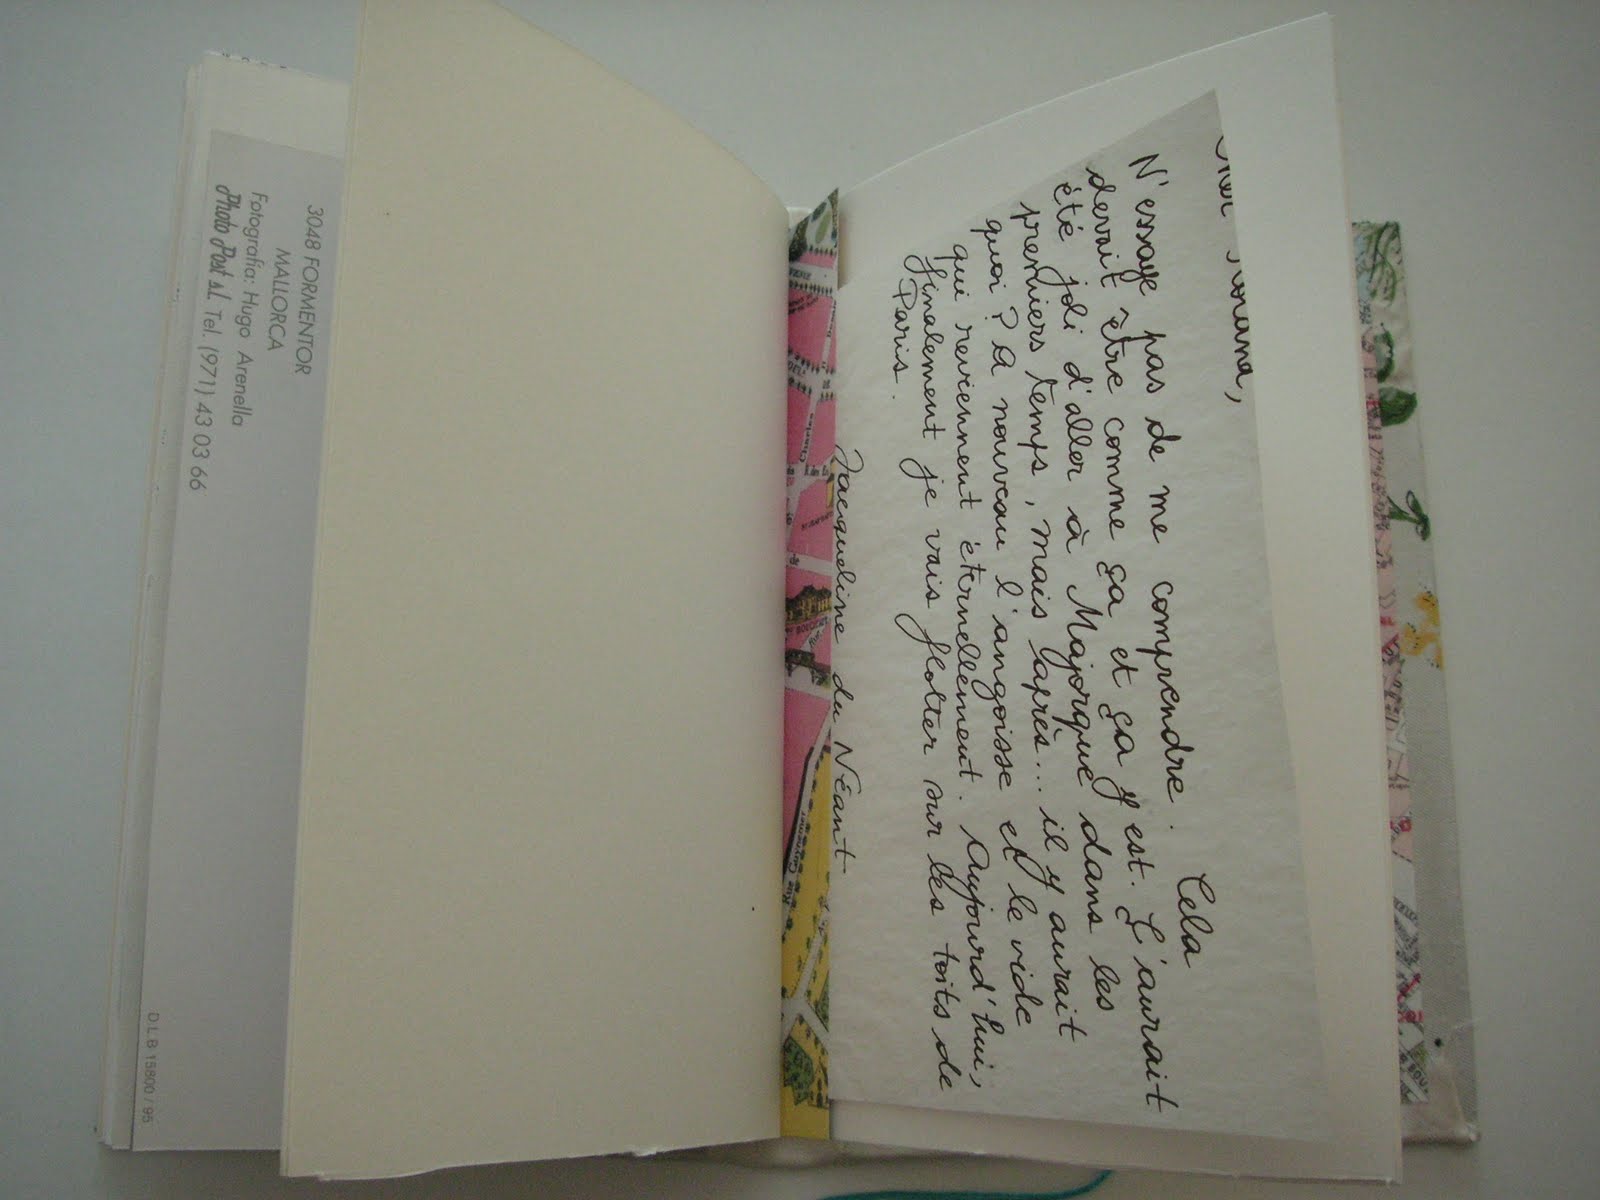 3048 FORMENTOR
MALLORCA
Fotografia: Hugo Arenella
Photo Post s.l. Tel. (971) 43 03 66
D L B 15800 / 95
N'essaye pas de me comprendre. Cela
devait être comme ça et ça y est. L'aurait
été joli d'aller à Majorque dans les
premiers temps, mais après... il y aurait
quoi ? A nouveau l'angoisse et le vide
qui reviennent éternellement. Aujourd'hui,
finalement je vais flotter sur les toits de
Paris.
Jacqueline du Néant
Rue Guynemer